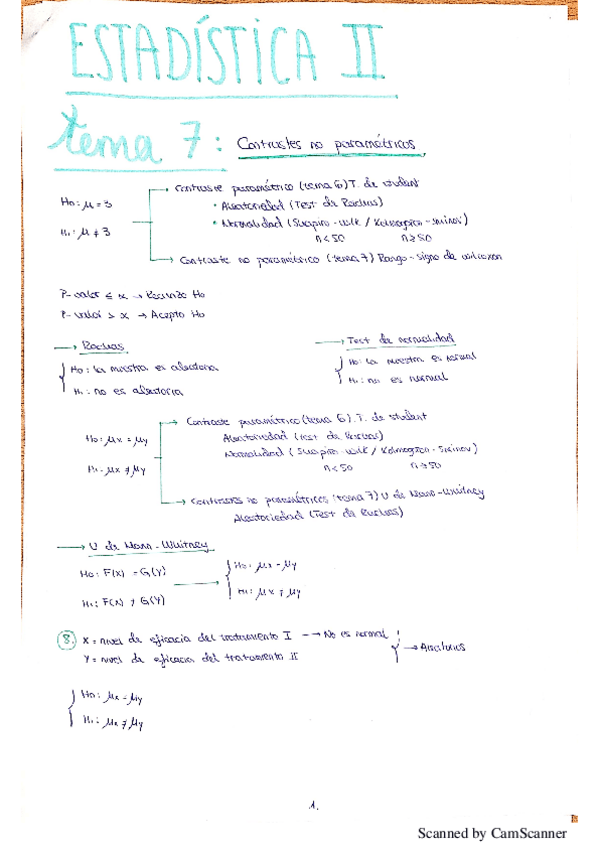 ESTADÍSTICA II
tema 7: Contrastes no paramétricos
H₀: μ = 3
H₁: μ ≠ 3
→ Contraste paramétrico (tema 6) T. de student
• Aleatoriedad (Test de Rachas)
• Normalidad (Shapiro-Wilk / Kolmogrov-Smirnov)
n<50 n≥50
→ Contraste no paramétrico (tema 7) Rango-signo de wilcoxon
P-valor ≤ α → Rechazo H₀
P-valor > α → Acepto H₀
→ Rachas
H₀: la muestra es aleatoria
H₁: no es aleatoria
→ Test de normalidad
H₀: la muestra es normal
H₁: no es normal
H₀: μx = μy
H₁: μx ≠ μy
→ Contraste paramétrico (tema 6). T. de student
Aleatoriedad (Test de Rachas)
Normalidad (Shapiro-Wilk / Kolmogrov-Smirnov)
n<50 n≥50
→ Contrastes no paramétricos (tema 7) U de Mann-Whitney
Aleatoriedad (Test de Rachas)
→ U de Mann-Whitney
H₀: F(X) = G(Y) → H₀: μx = μy
H₁: F(X) ≠ G(Y) H₁: μx ≠ μy
8. X = nivel de eficacia del tratamiento I --→ No es normal
Y = nivel de eficacia del tratamiento II
H₀: μx = μy
H₁: μx ≠ μy
1.
Scanned by CamScanner